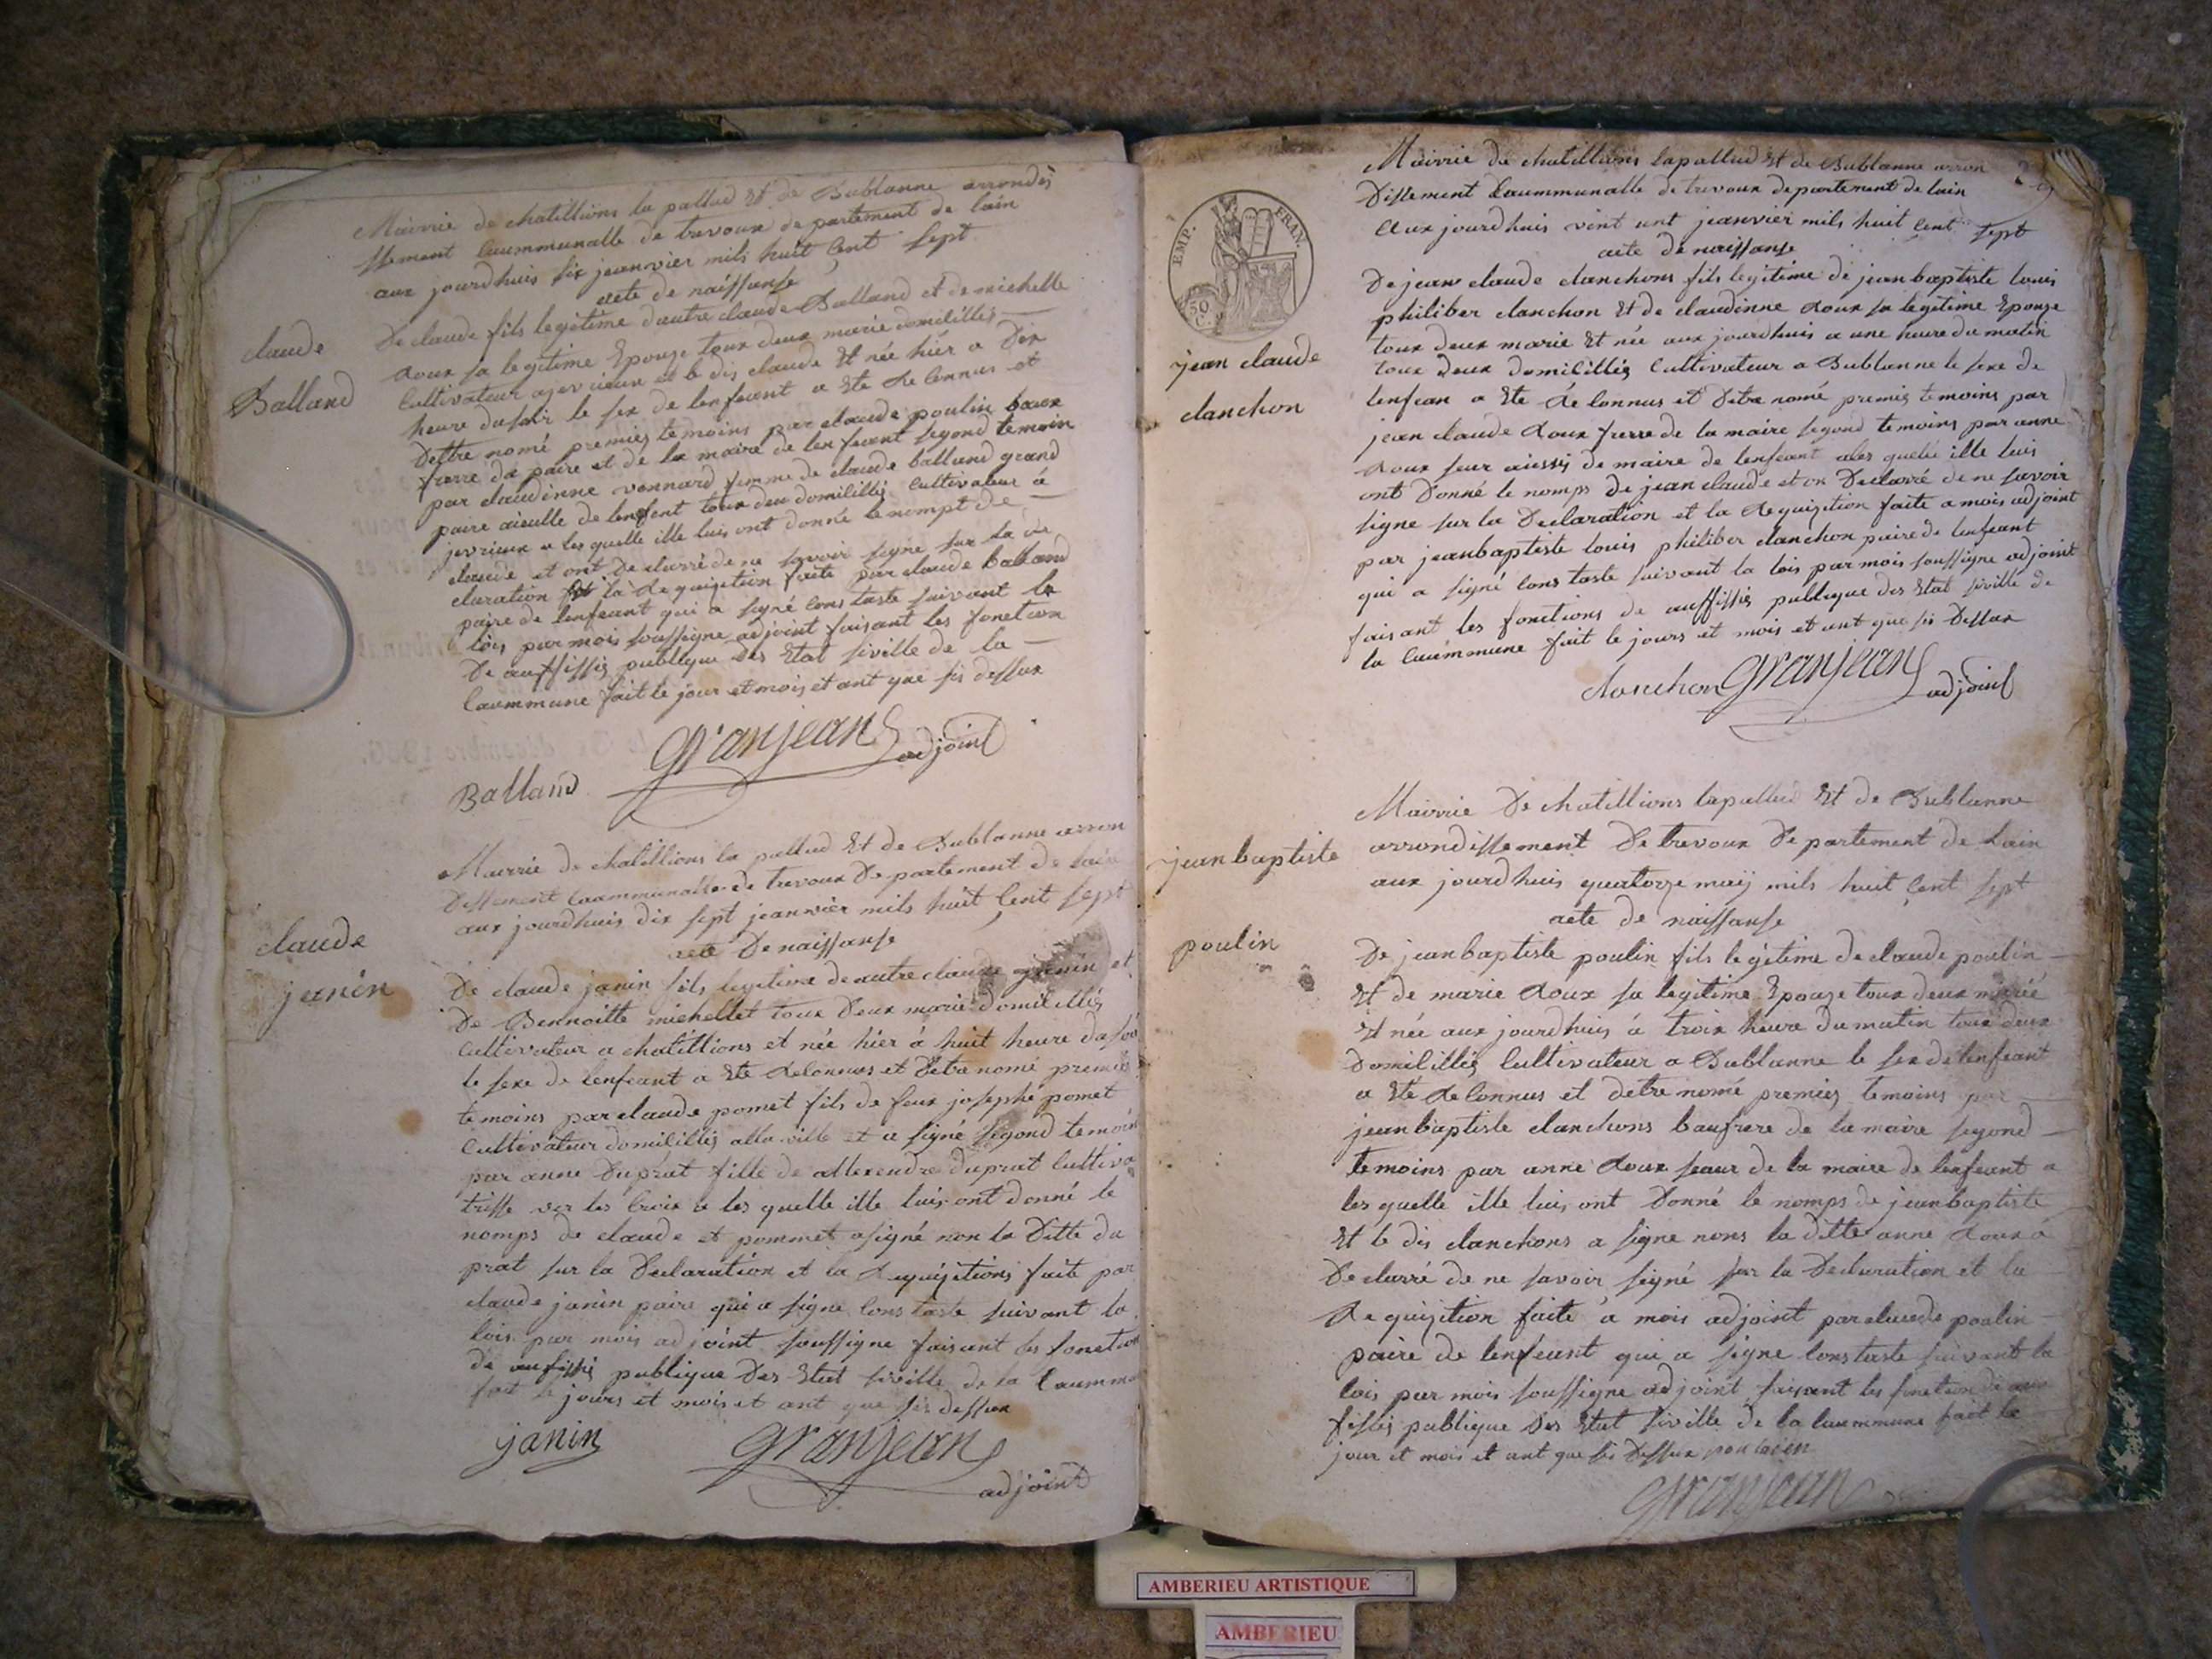 Mairrie de chatillions la pallud Et de Bublanne arrondis
ssement Caummunalle de trevoux de partement de lain
aux jourdhuis six jeanvier mils huit Cent sept
acte de naissansse
claude
Balland
De claude fils legitime dautre claude Balland et de michelle
doux sa legitime Epouze toux deux marie domicilliés
Cultivateur a jevrieux et le dis claude Et née hier a Dix
heure dusoir le sex de lenfeant a Ete de Connus et
Dettre nomé premies temoins par claude poulin baux
frerre de paire et de la maire de lenfeant segond temoin
par claudinne vonnard femme de claude balland grand
paire aieulle de lenfent toux deu domicilliés Cultivateur à
jevrieux a les quelle ille luis ont donné le nompt de
claude et ont declarré de ne savoir signe sur la de
claration Et la de quizition faite par claude balland
paire de lenfeant qui a signé Cons taste suivant la
lois par mois soussigne adjoint faisant les fonction
De auffissiés publique des Etat siville de la
Caummune fait le jour et mois et ant que sis dessux
Balland
granjean adjoint
Mairrie de chatillions la pallud Et de Bublanne arron
Dissement Caummunalle de trevoux Departement de lain
aux jourdhuis dix sept jeanvier mils huit Cent sept
acte De naissansse
claude
jeanin
De claude janin fils legitime de autre claude janin et
De Bennoitte michellet toux Deux marie domicilliés
Cultivateur a chatillions et née hier à huit heure du soi
le sexe de lenfeant a Ete deConnus et Detre nomé premiés
temoins par claude pomet fils de feux josephe pomet
Cultivateur domicilliés alla ville et a signé segond temoin
par anne Duprat fille de allexendre duprat Cultiva
trisse ver les Croix a les quelle ille luis ont donné le
nomps de claude et pommet a signé non la Ditte du
prat sur la Declaration et la de quizitions faite par
claude janin paire qui a signe Cons taste suivant la
lois par mois adjoint soussigne faisant les fonction
de auffissié publique Des Etat siville de la Caummu
fait le jours et mois et ant que sis dessux
janin
granjean
adjoint
EMP. FRAN.
50
C.
Mairrie de chatillions lapallud Et de Bublanne arron
Dissement Caummunalle de trevoux departement de lain
Aux jourdhuis vint unt jeanvier mils huit Cent sept
acte de naissansse
jean claude
clanchon
De jean claude clanchons fils legitime de jean baptiste louis
philiber clanchon Et de claudinne doux sa legitime Epouze
toux deux marie Et née aux jourdhuis a une heure du matin
toux Deux domicilliés Cultivateur a Bublanne le sexe de
lenfean a Ete déConnus et Detre nomé premiés temoins par
jean claude doux frerre de la maire segond temoins par anne
doux seur aiessis de maire de lenfeant a les quelle ille luis
ont Donné le nomps de jean claude et on Declarré de ne savoir
signe sur la Declaration et la dequizition faite a mois adjoint
par jeanbaptiste louis philiber clanchon paire de lenfeant
qui a signé Cons taste suivant la lois par mois soussigne adjoint
faisant les fonctions de auffissiés publique des Etat siville de
la Caummune fait le jours et mois et ant que sis Dessux
clanchon granjean adjoint
Mairrie De chatillions lapallud Et de Bublanne
arrondissement De trevoux Departement de Lain
aux jourdhuis quatorze maij mils huit Cent sept
acte de naissansse
jeanbaptiste
poulin
De jeanbaptiste poulin fils legitime de claude poulin
Et de marie doux sa legitime Epouze toux deux marié
Et née aux jourdhuis à troix heure du matin toux deux
Domicilliés Cultivateur a Bublanne le sex de lenfeant
a Eté deConnus et detre nomé premiés temoins par
jean baptiste clanchons baufrere de la maire segond
temoins par anne doux seaur de la maire de lenfeant a
les quelle ille luis ont Donné le nomps de jeanbaptiste
Et le dis clanchons a signe nons la ditte anne doux a
De clarré de ne savoir signé sur la Declaration et la
de quizition faite à mois adjoint par claude poulin
paire de lenfeant qui a signe Cons taste suivant la
lois par mois soussigne adjoint faisant les fonction de auf
fissiés publique Des Etat siville de la Caummune fait le
jour et mois et ant que sis Dessux poulain
granjean
AMBERIEU ARTISTIQUE
AMBERIEU